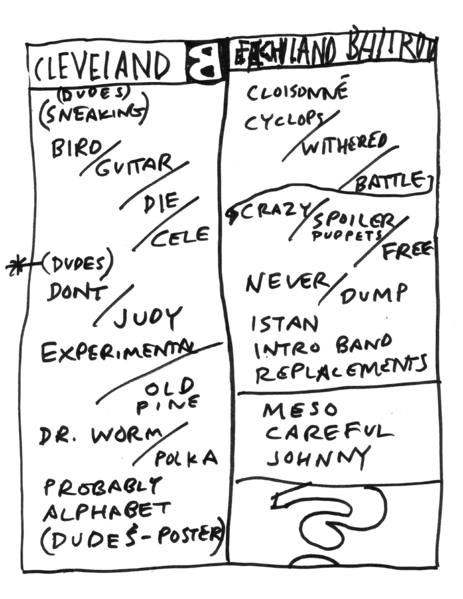 CLEVELAND
B
(DUDES)
(SNEAKING)
BIRD/
GUITAR/
DIE/
CELE
*-(DUDES)
DONT/
JUDY
EXPERIMENTAL/
OLD
PINE
DR. WORM/
POLKA
PROBABLY
ALPHABET
(DUDES-POSTER)
CLOISONNÉ
CYCLOPS/
WITHERED/
BATTLE
CRAZY/
SPOILER/
PUPPETS
FREE
NEVER/
DUMP
ISTAN
INTRO BAND
REPLACEMENTS
MESO
CAREFUL
JOHNNY
?